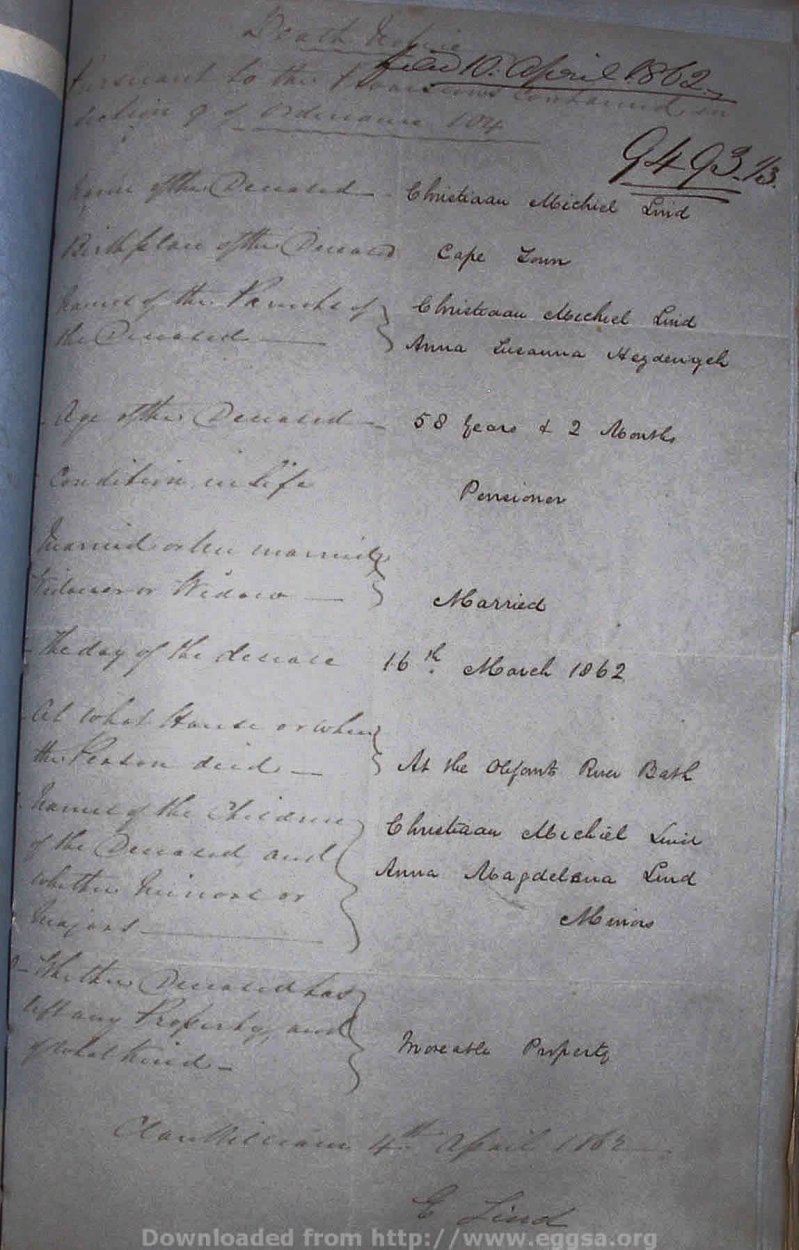 Death Notice
filed 10. April 1862
Pursuant to the Provisions Contained in
Section 9 of Ordinance 104
9493 1/3.
Name of the Deceased - Christiaan Michiel Lind
Birth place of the Deceased Cape Town
Names of the Parents of Christiaan Michiel Lind
the Deceased Anna Susanna
Age of the Deceased - 58 Years & 2 Months
Condition in Life Pensioner
Married or
Widower or Widow - Married
The day of the decease 16th March 1862
At what House or where
the Person died - At the Olifants River Bath
Names of the Children Christiaan Michiel Lind
of the Deceased and Anna Magdelena Lind
whether Minors or Minors
Majors
Whether Deceased has
left any Property, and Moveable Property
of what kind -
Clanwilliam 4th April 1862
C Lind
Downloaded from http://www.eggsa.org